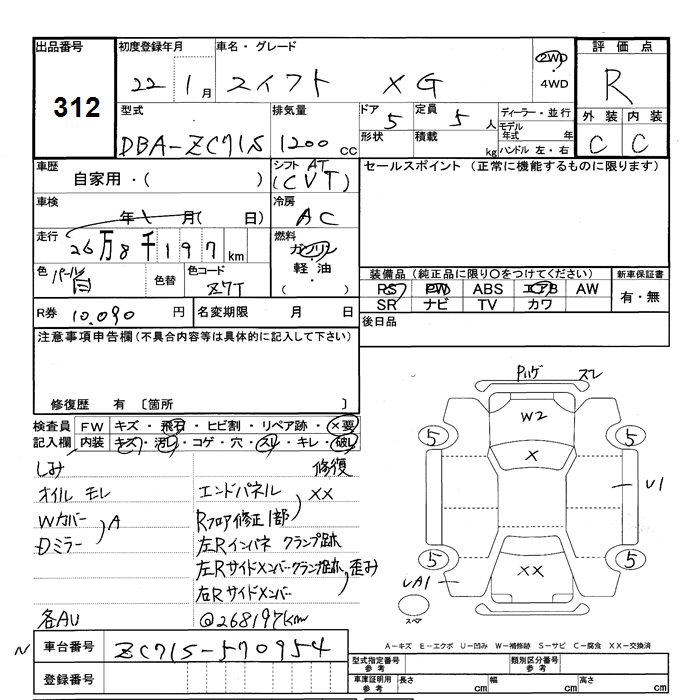 出品番号
312
初度登録年月
22 1月
車名・グレード
スイフト XG
2WD
・
4WD
評価点
R
型式
DBA-ZC71S
排気量
1200 cc
ドア
5
形状
定員
5人
積載
kg
ディーラー・並行
モデル年式 年
ハンドル 左・右
外装 内装
C C
車歴
自家用・( )
シフト AT
(CVT)
セールスポイント (正常に機能するものに限ります)
車検
年 月( 日)
冷房
AC
走行
26万8千197km
燃料
ガソリン
・
軽油
( ・ )
色 パール白
色替
色コード
Z7T
装備品 (純正品に限り○をつけてください)
PS PW ABS エアB AW
SR ナビ TV カワ
新車保証書
有・無
R券 10,090円
名変期限 月 日
後日品
注意事項申告欄(不具合内容等は具体的に記入して下さい)
修復歴 有 〔箇所 〕
検査員記入欄
FW キズ・飛石・ヒビ割・リペア跡・×要
内装 キズ・汚レ・コゲ・穴・スレ・キレ・破レ
しみ
オイル モレ
Wカバー
Dミラー
A
各AU
修復
エンドパネル
Rフロア修正1部
XX
左Rインパネ クランプ跡
左Rサイドメンバークランプ跡、歪み
右Rサイドメンバー
@268197km
スレ
W2
X
XX
5
5
5
5
U1
UA1
スペア
N
車台番号
ZC71S-570954
登録番号
A-キズ E-エクボ U-凹み W-補修跡 S-サビ C-腐食 XX-交換済
型式指定番号
参考
類別区分番号
参考
車庫証明用
参考
長さ cm
幅 cm
高さ cm